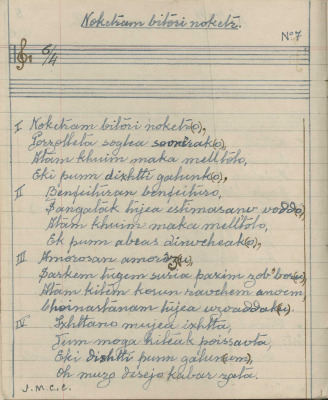 Noketram bitôri noketr.
Nº 7
6/4
I Noketram bitôri noketr(o),
Porzolleta soglea sounsrak(o),
Atam khuim maka melltôlo,
Eki punn dixhtti gatunk(o),
II Benfeituran benfeituro,
Sangatak tujea estimasanv voddo,
Atam khuim maka melltôlo,
Ek punn abras dinvcheak(o),
III Amorosan amoroz(o),
Sarkem tugem suria parim zob bor(o),
Atam kitem korun ravchem anvem,
tujea uzvaddak(o)
IV Ixhttano mujea ixhtta,
Tum moga kiteak poissavta,
Eki dixhtti punn gatun(em),
Oh muzo disejo kabar zata.
J.M.C.C.